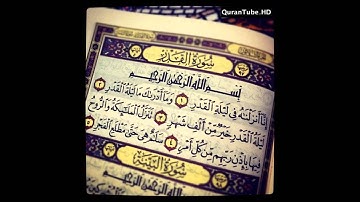 QuranTube.HD
سُورَةُ الْقَدْرِ
بِسْمِ اللَّهِ الرَّحْمَٰنِ الرَّحِيمِ
إِنَّا أَنزَلْنَاهُ فِي لَيْلَةِ الْقَدْرِ ١ وَمَا أَدْرَاكَ مَا لَيْلَةُ الْقَدْرِ ٢
لَيْلَةُ الْقَدْرِ خَيْرٌ مِّنْ أَلْفِ شَهْرٍ ٣ تَنَزَّلُ الْمَلَائِكَةُ وَالرُّوحُ
فِيهَا بِإِذْنِ رَبِّهِم مِّن كُلِّ أَمْرٍ ٤ سَلَامٌ هِيَ حَتَّىٰ مَطْلَعِ الْفَجْرِ ٥
سُورَةُ الْبَيِّنَةِ
بِسْمِ اللَّهِ الرَّحْمَٰنِ الرَّحِيمِ